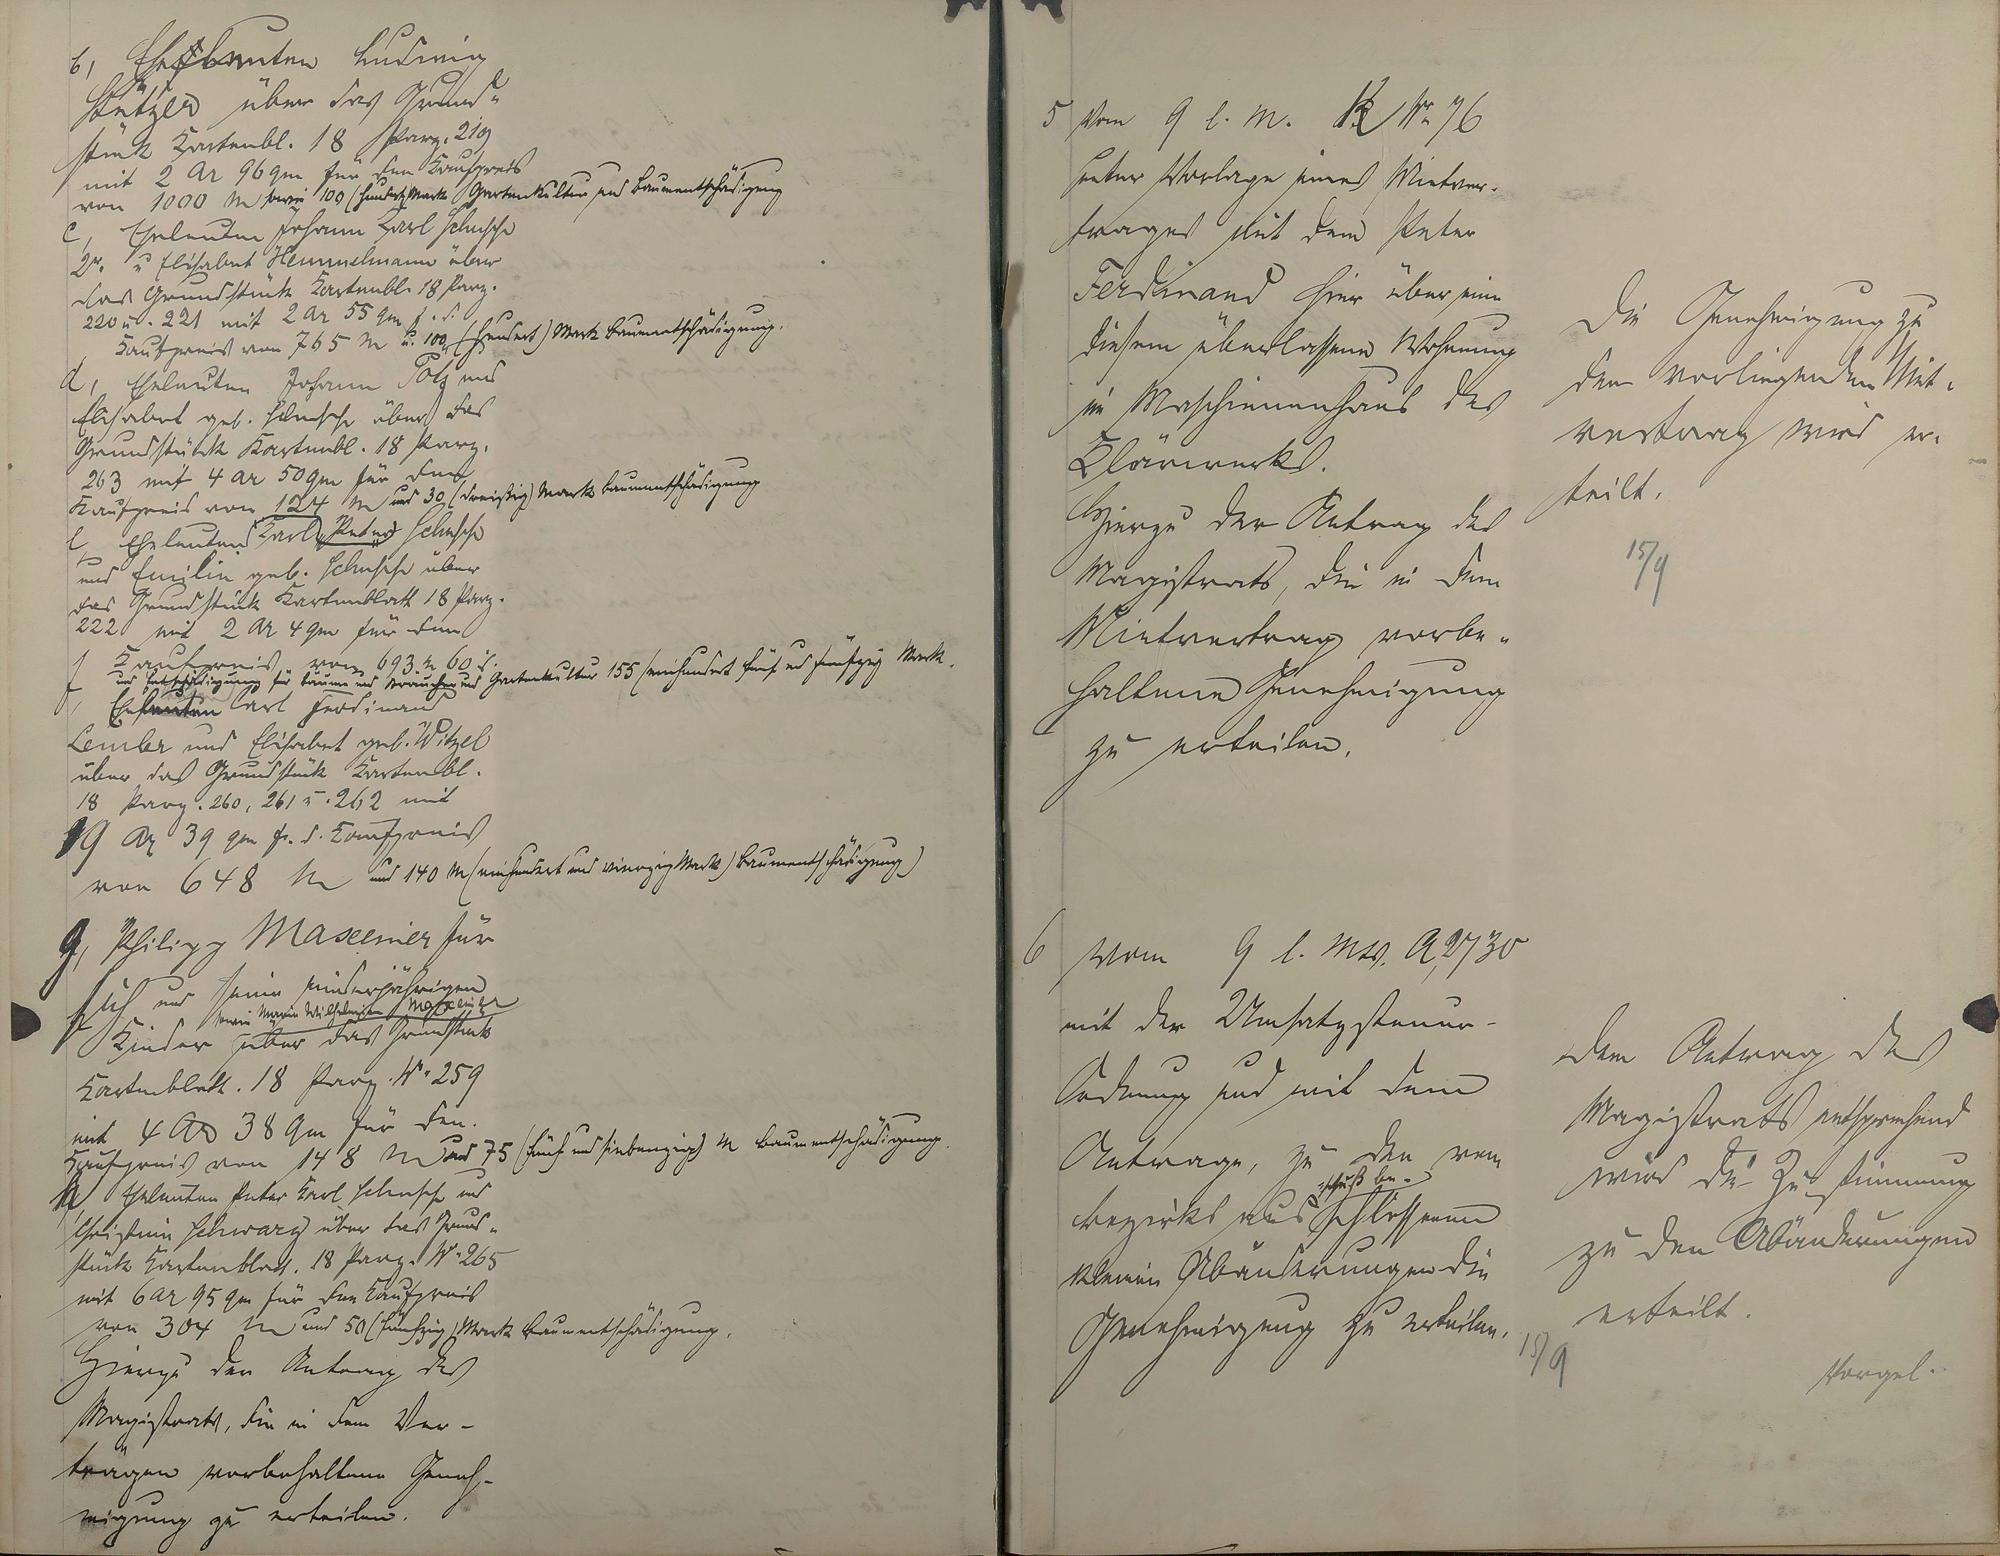 b, Eheleuten Ludwig
Stützer über das Grund-
stück Kartenbl. 18 Parz. 219
mit 2 Ar 96 qm für den Kaufpreis
von 1000 M sowie 100 (hundert) Mark Gartenkultur und Baumentschädigung
c, Eheleuten Johann Karl Schusche
2r. u Elisabet Hemmelmann über
das Grundstück Kartenbl. 18 Parz.
220 u. 221 mit 2 Ar 55 qm f. d.
Kaufpreis von 765 M u. 100 (hundert) Mark Baumentschädigung.
d, Eheleuten Johann Potz und
Elisabet geb. Schusche über das
Grundstück Kartenbl. 18 Parz.
263 mit 4 Ar 50 qm für den
Kaufpreis von 124 M und 30 (dreißig) Mark Baumentschädigung
e, Eheleuten Karl Peter Schusche
und Emilie geb. Schusche über
das Grundstück Kartenblatt 18 Parz.
222 mit 2 Ar 4 qm für den
Kaufpreis von 693 M 60 d.
und Entschädigung für Bäume und Sträucher und Gartenkultur 155 (einhundert fünf und fünfzig) Mark.
f, Eheleuten Carl Ferdinand
Lember und Elisabet geb. Witzel
über das Grundstück Kartenbl.
18 Parz. 260, 261 u. 262 mit
19 Ar 39 qm f. d. Kaufpreis
von 648 M und 140 M (einhundert und vierzig Mark) Baumentschädigung)
g, Philipp Maxeiner für
sich und seine minderjährigen
sowie Marie Wilhelmine Maxeiner
Kinder über das Grundstück
Kartenblatt. 18 Parz. No 259
mit 4 Ar 38 qm für den
Kaufpreis von 148 M und 75 (fünf und siebenzig) M Baumentschädigung.
h Eheleuten Peter Karl Schusche und
Christine Schwarz über das Grund-
stück Kartenblatt. 18 Parz. No 265
mit 6 Ar 95 qm für den Kaufpreis
von 304 M und 50 (fünfzig) Mark Baumentschädigung.
Hierzu der Antrag des
Magistrats, die in dem Ver-
trägen vorbehaltene Geneh-
migung zu erteilen.
5 Vom 9 l. M. No 76
unter Vorlage eines Mietver-
trages mit dem Peter
Ferdinand hier über eine
diesem überlassene Wohnung
im Maschinenhaus des
Klärwerks.
Hierzu der Antrag des
Magistrats, die in dem
Mietvertrag vorbe-
haltene Genehmigung
zu erteilen.
Die Genehmigung zu
dem vorliegenden Miet-
vertrag wird er-
teilt.
15/9
6 vom 9 l. Mts. A, 2730
mit der Umsatzsteuer-
Ordnung und mit dem
Antrage, zu den vom
schuß be-
Bezirksausschlossenen
kleinen Abänderungen die
Genehmigung zu erteilen.
15/9
Dem Antrag des
Magistrats entsprechend
wird die Zustimmung
zu den Abänderungen
erteilt.
Vorgel.